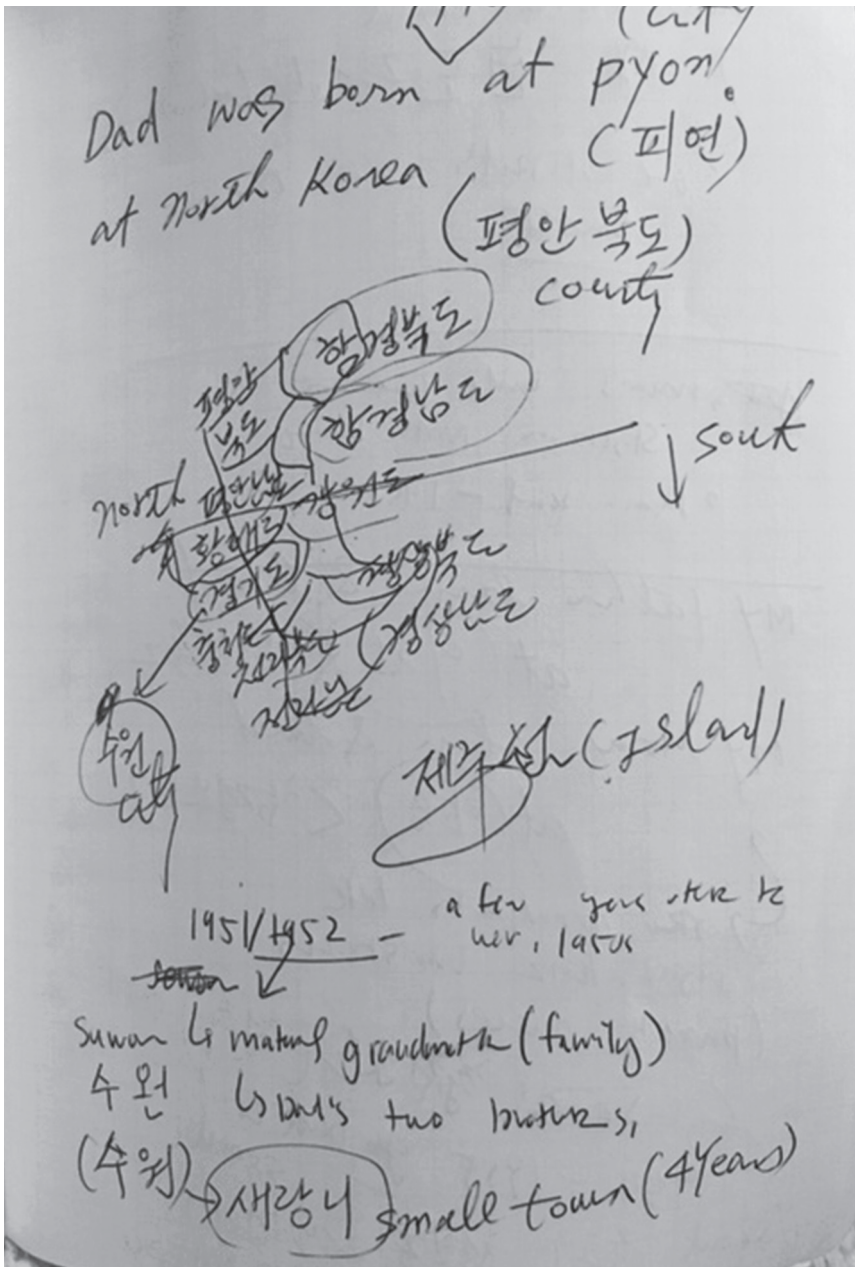 (city
Dad was born at pyon.
(피연)
at north Korea
(평안 북도)
county
함경북도
평안
북도
함경남도
south
north
평안남도
강원도
황해도
경기도
경상북도
충청도
전라북도
(경상남도
전라남도
수원
city
제주섬 (Island)
1951/1952 — a few years after the
war, 1950s
Suwon ↳ maternal grandmother (family)
수원 ↳ Dad's two brothers,
(수원) → 새랑니 small town (4 years)